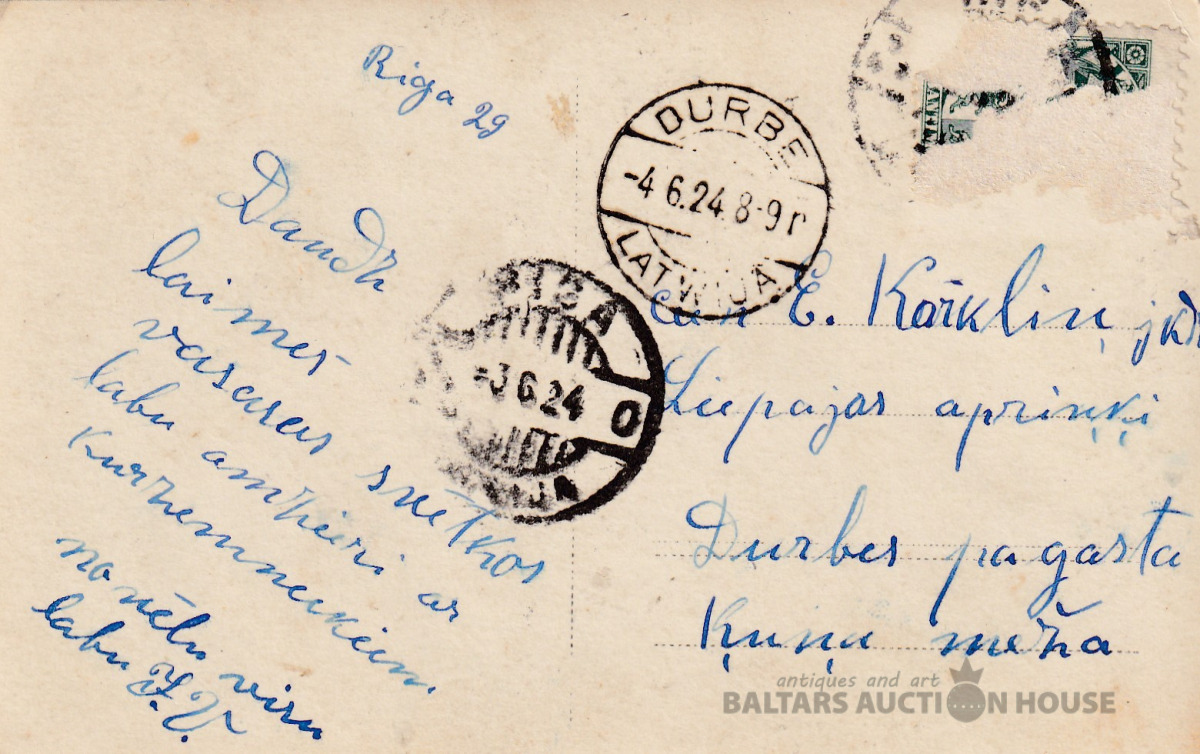 Riga 29
Daudz
laimes
vasaras svētkos
labu amzieri ar
Kurzemneekiem.
no vēlu visu
labu
DURBE
-4 6.24 8-9 r
LATWIJA
RIGA
-3 6.24
O
E. Kārkliņ
Liepajas apriņķi
Durbes pagasta
Ķuņu meža
antiques and art
BALTARS AUCTION HOUSE